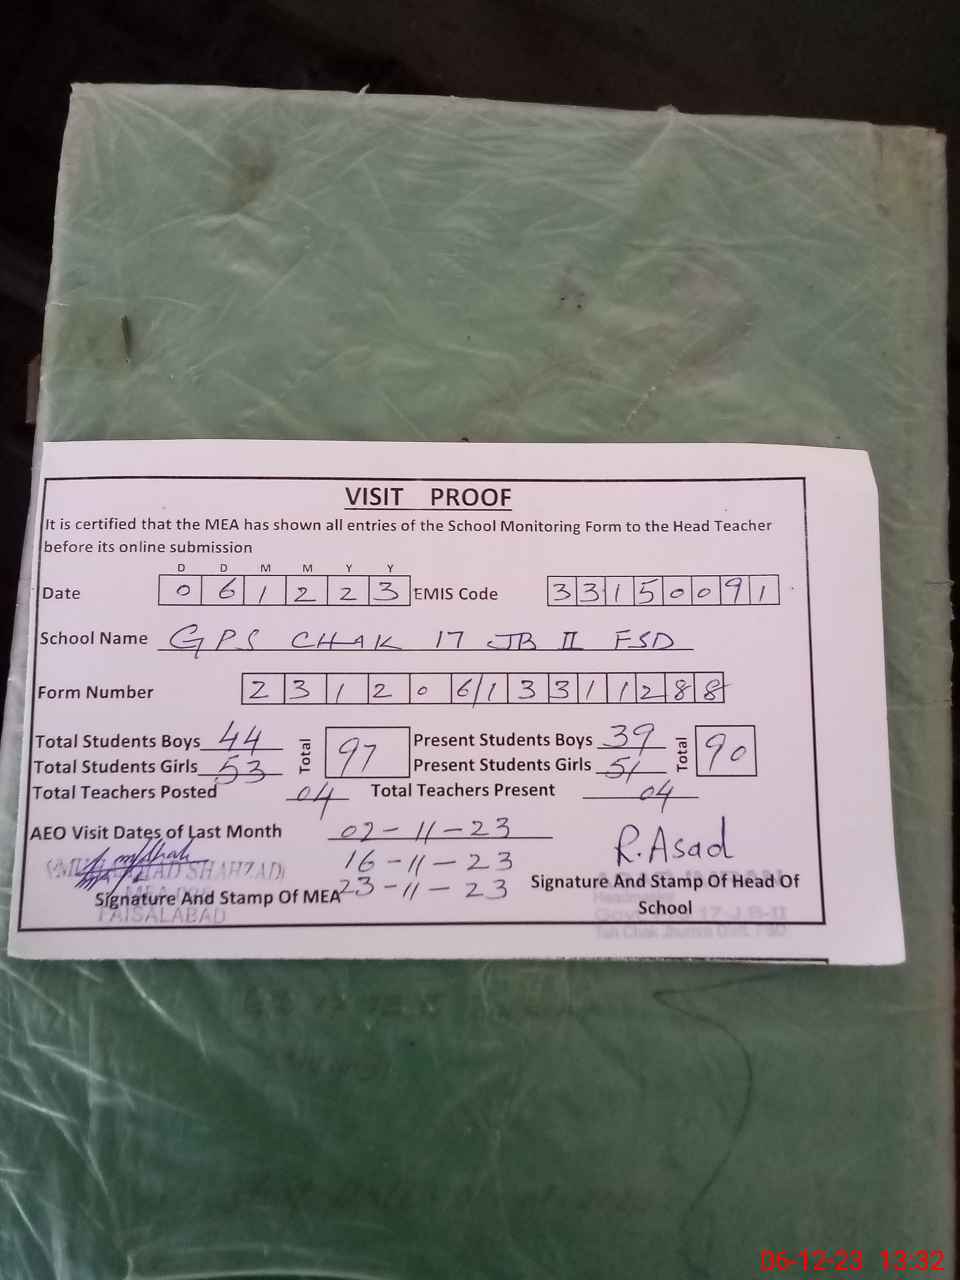 VISIT PROOF
It is certified that the MEA has shown all entries of the School Monitoring Form to the Head Teacher
before its online submission
D D M M Y Y
Date 0 6 1 2 2 3 EMIS Code 3 3 1 5 0 0 9 1
School Name GPS CHAK 17 JB II FSD
Form Number 2 3 1 2 0 6/1 3 3 1 1 2 8 8
Total Students Boys 44 Total 97 Present Students Boys 39 Total 90
Total Students Girls 53 Present Students Girls 51
Total Teachers Posted 04 Total Teachers Present 04
AEO Visit Dates of Last Month 02-11-23
16-11-23
23-11-23
R.Asad
SHAHZAD)
Signature And Stamp Of MEA
FAISALABAD
Signature And Stamp Of Head Of
School
17-J.B-II
06-12-23 13:32